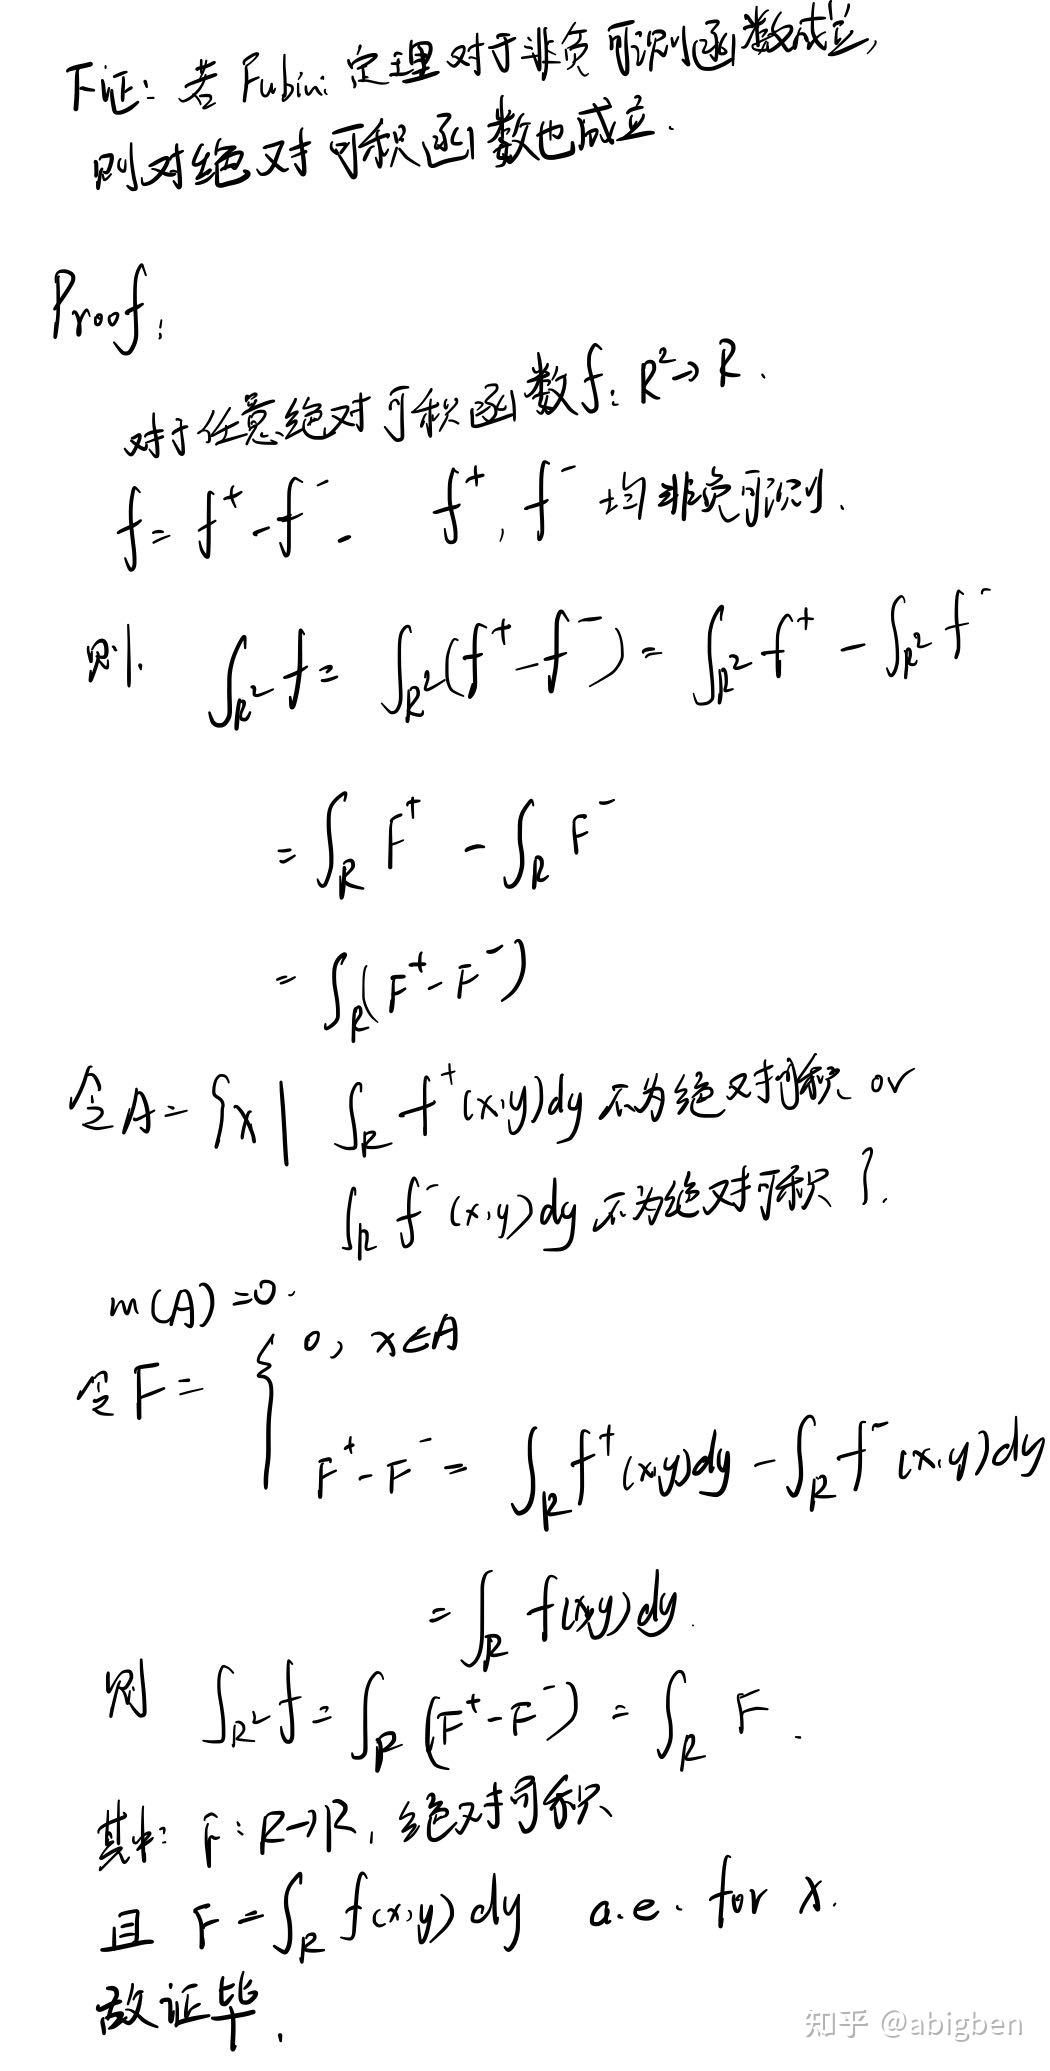 下证: 若 Fubini 定理对于非负可测函数成立,
则对绝对可积函数也成立.
Proof:
对于任意绝对可积函数 f: R²→R.
f = f⁺ - f⁻. f⁺, f⁻ 均非负可测.
则. ∫_{R²} f = ∫_{R²} (f⁺ - f⁻) = ∫_{R²} f⁺ - ∫_{R²} f⁻
= ∫_R F⁺ - ∫_R F⁻
= ∫_R (F⁺ - F⁻)
令 A = {x | ∫_R f⁺(x,y)dy 不为绝对可积 or
∫_R f⁻(x,y)dy 不为绝对可积 }.
m(A) = 0.
令 F = { 0, x∈A
F⁺ - F⁻ = ∫_R f⁺(x,y)dy - ∫_R f⁻(x,y)dy
= ∫_R f(x,y)dy.
则 ∫_{R²} f = ∫_R (F⁺ - F⁻) = ∫_R F.
其中: F: R→R, 绝对可积
且 F = ∫_R f(x,y)dy a.e. for x.
故证毕.
知乎 @abigben